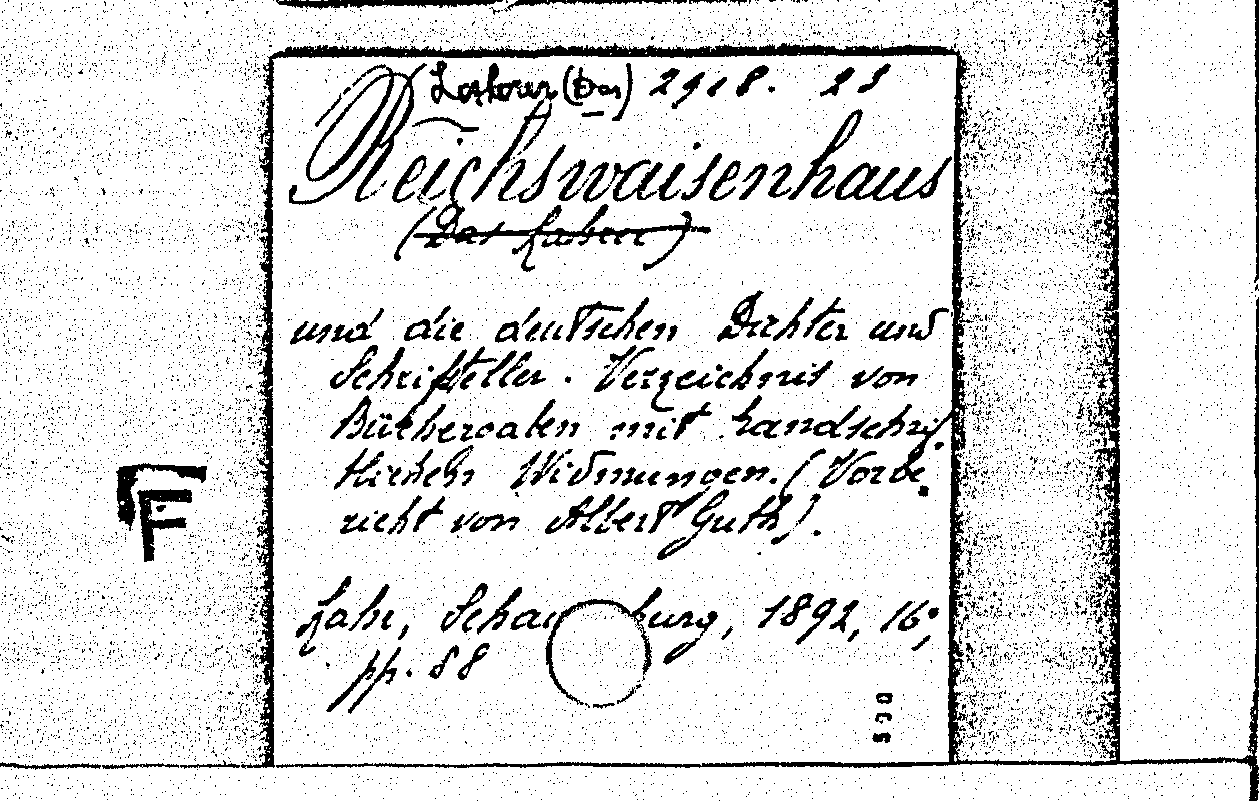 (Das) 2918. 23
Reichswaisenhaus
(Das Lahrer)
und die deutschen Dichter und
Schriftsteller. Verzeichnis von
Büchergaben mit handschrif
tlichen Widmungen. (Vorbe
richt von Albert Guth).
Lahr, Schauenburg, 1892, 16°,
pp. 88
500
F